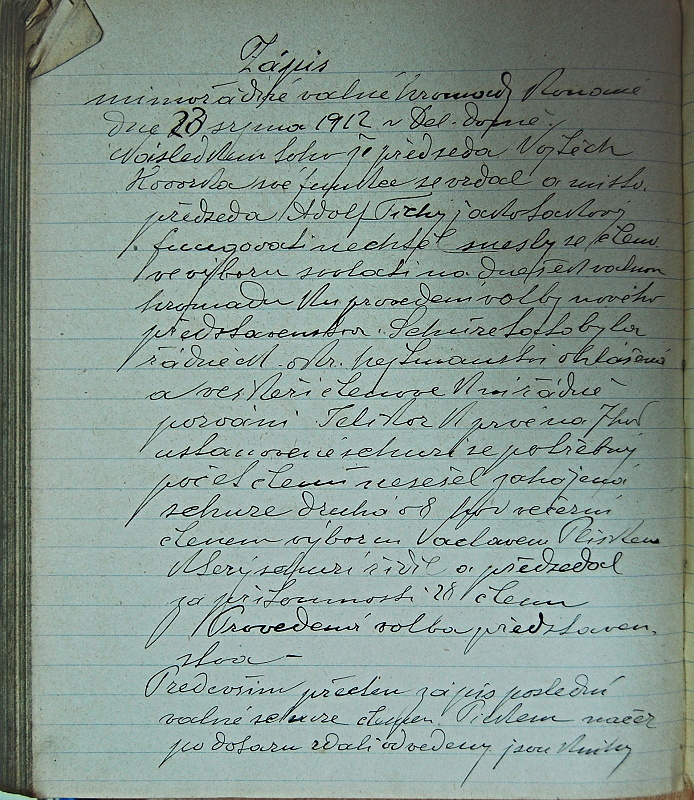 Zápis
mimořádné valné hromady konané
dne 28 srpna 1912 v Děl. domě.
Následkem toho že předseda Vojtěch
své funkce se vzdal a místo-
předseda Adolf Tichý jako takový
fungovati nechtěl snesly se členi
ve výboru svolati na dnešek valnou
hromadu ku provedení volby nového
představenstva. Schůze tato byla
řádně okr. hejtmanství ohlášena
a veškeří členové k ní řádně
pozváni. Jelikož k prvé na 7 hod
ustanovené schůzi se potřebný
počet členů nesešel zahájena
schůze druhá o 8 hod večerní
členem výboru Václavem
který schůzi řídil a předsedal
za přítomnosti 28 členů
Provedena volba představen-
stva –
Především přečten zápis poslední
valné schůze členem Tichem načež
po dotazu zdali odvedeny jsou knihy